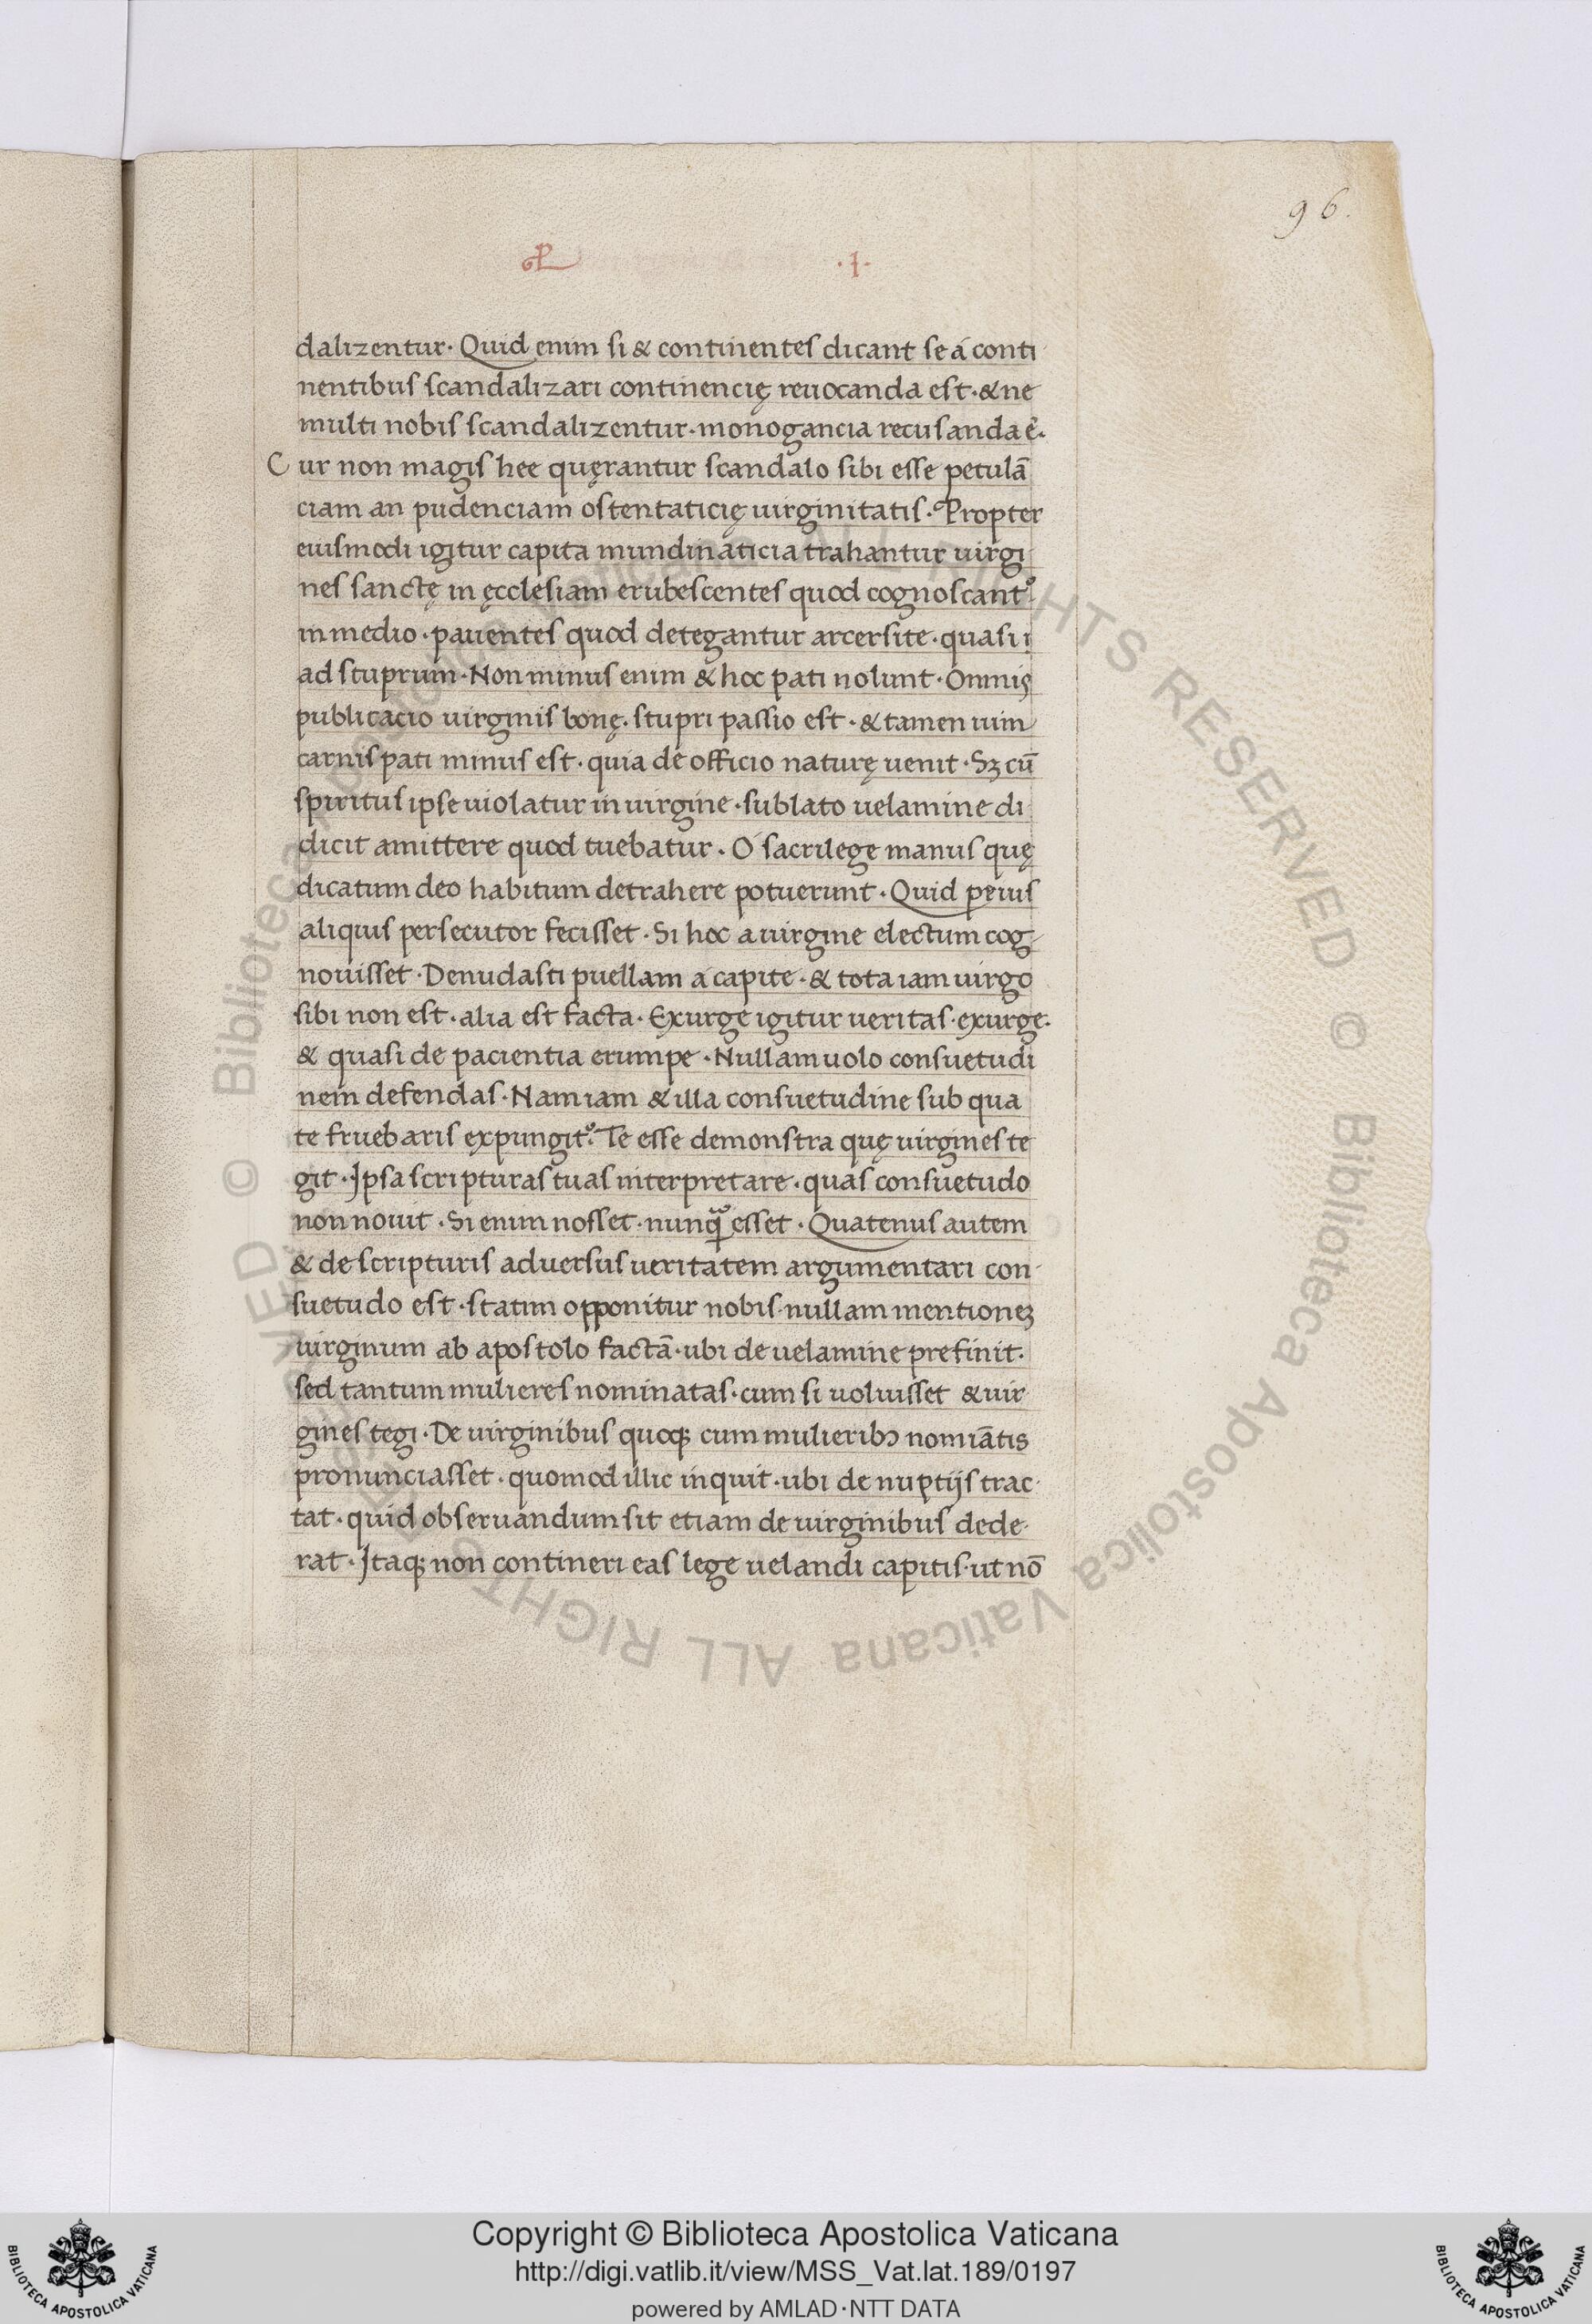 96.
·I·
dalizentur· Quid enim si & continentes dicant se a conti
nentibus scandalizari continencię reuocanda est·& ne
multi nobis scandalizentur·monogancia recusanda ē·
Cur non magis hee quęrantur scandalo sibi esse petulā
ciam an pudenciam ostentaticię uirginitatis· Propter
eiusmodi igitur capita mundinaticia trahantur uirgi
nes sanctę in ęcclesiam erubescentes quod cognoscant᷑·
in medio·pauentes quod detegantur arcersite·quasi i
ad stuprum·Non minus enim & hoc pati nolunt·Omnis
publicacio uirginis bonę·stupri passio est·& tamen uim
carnis pati minus est·quia de officio naturę uenit·Sꝫ cū
spiritus ipse uiolatur in uirgine·sublato uelamine di
dicit amittere quod tuebatur·O sacrilege manus quę
dicatum deo habitum detrahere potuerunt·Quid peius
aliquis persecutor fecisset·Si hoc a uirgine electum cog
nouisset·Denudasti puellam a capite·& tota iam uirgo
sibi non est·alia est facta·Exurge igitur ueritas·exurge·
& quasi de pacientia erumpe·Nullam uolo consuetudi
nem defendas·Nam iam & illa consuetudine sub qua
te fruebaris expungit᷑·Te esse demonstra quę uirgines te
git·Ipsa scripturas tuas interpretare·quas consuetudo
non nouit·Si enim nosset·nunꝗᷓ esset·Quatenus autem
& de scripturis aduersus ueritatem argumentari con
suetudo est·statim opponitur nobis·nullam mentioneꝫ
uirginum ab apostolo factā·ubi de uelamine prefinit·
sed tantum mulieres nominatas·cum si uoluisset & uir
gines tegi·De uirginibus quoqꝫ cum mulieribꝰ nomiātis
pronunciasset·quomod illic inquit·ubi de nuptijs trac
tat·quid obseruandum sit etiam de uirginibus dede
rat·Itaqꝫ non contineri eas lege uelandi capitis·ut nō
© Biblioteca Apostolica Vaticana ALL RIGHTS RESERVED
Copyright © Biblioteca Apostolica Vaticana
http://digi.vatlib.it/view/MSS_Vat.lat.189/0197
powered by AMLAD·NTT DATA
BIBLIOTECA APOSTOLICA VATICANA
BIBLIOTECA APOSTOLICA VATICANA